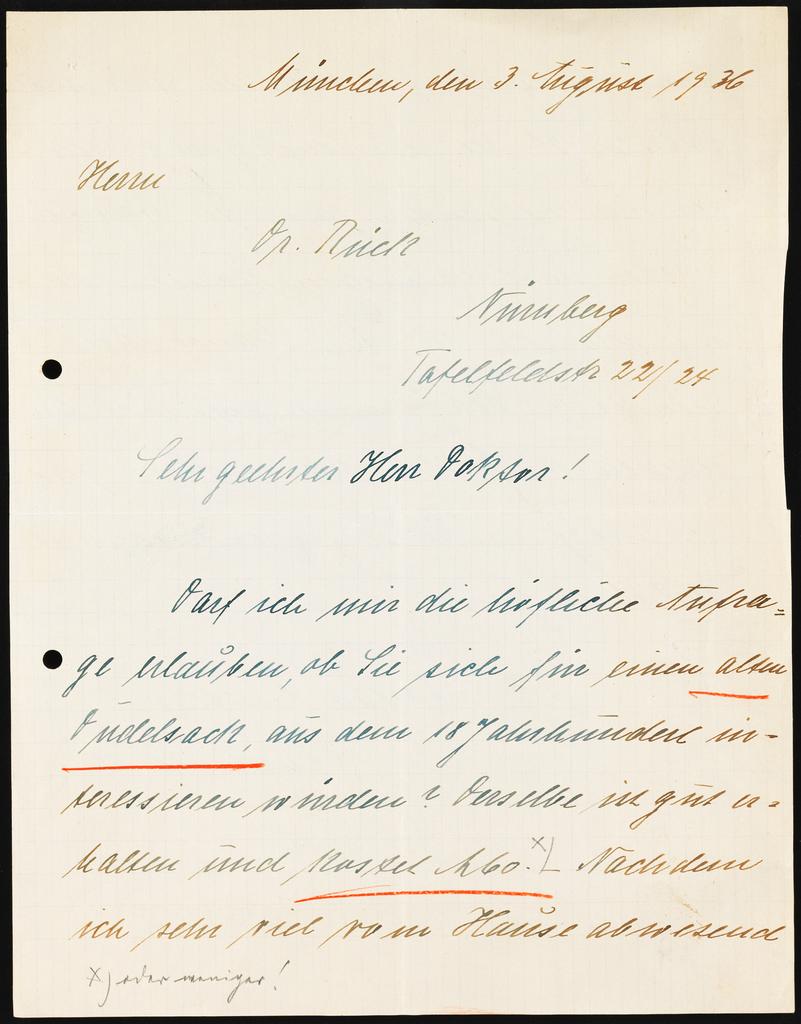 München, den 3. August 1936
Herrn
Dr. Rück
Nürnberg
Tafelfeldstr 22/24
Sehr geehrter Herr Doktor!
Darf ich mir die höfliche Anfra=
ge erlauben, ob Sie sich für einen alten
Dudelsack, aus dem 18 Jahrhundert in-
teressieren würden? Derselbe ist gut er=
halten und kostet M 60.- x) Nachdem
ich sehr viel vom Hause abwesend
x) oder weniger!